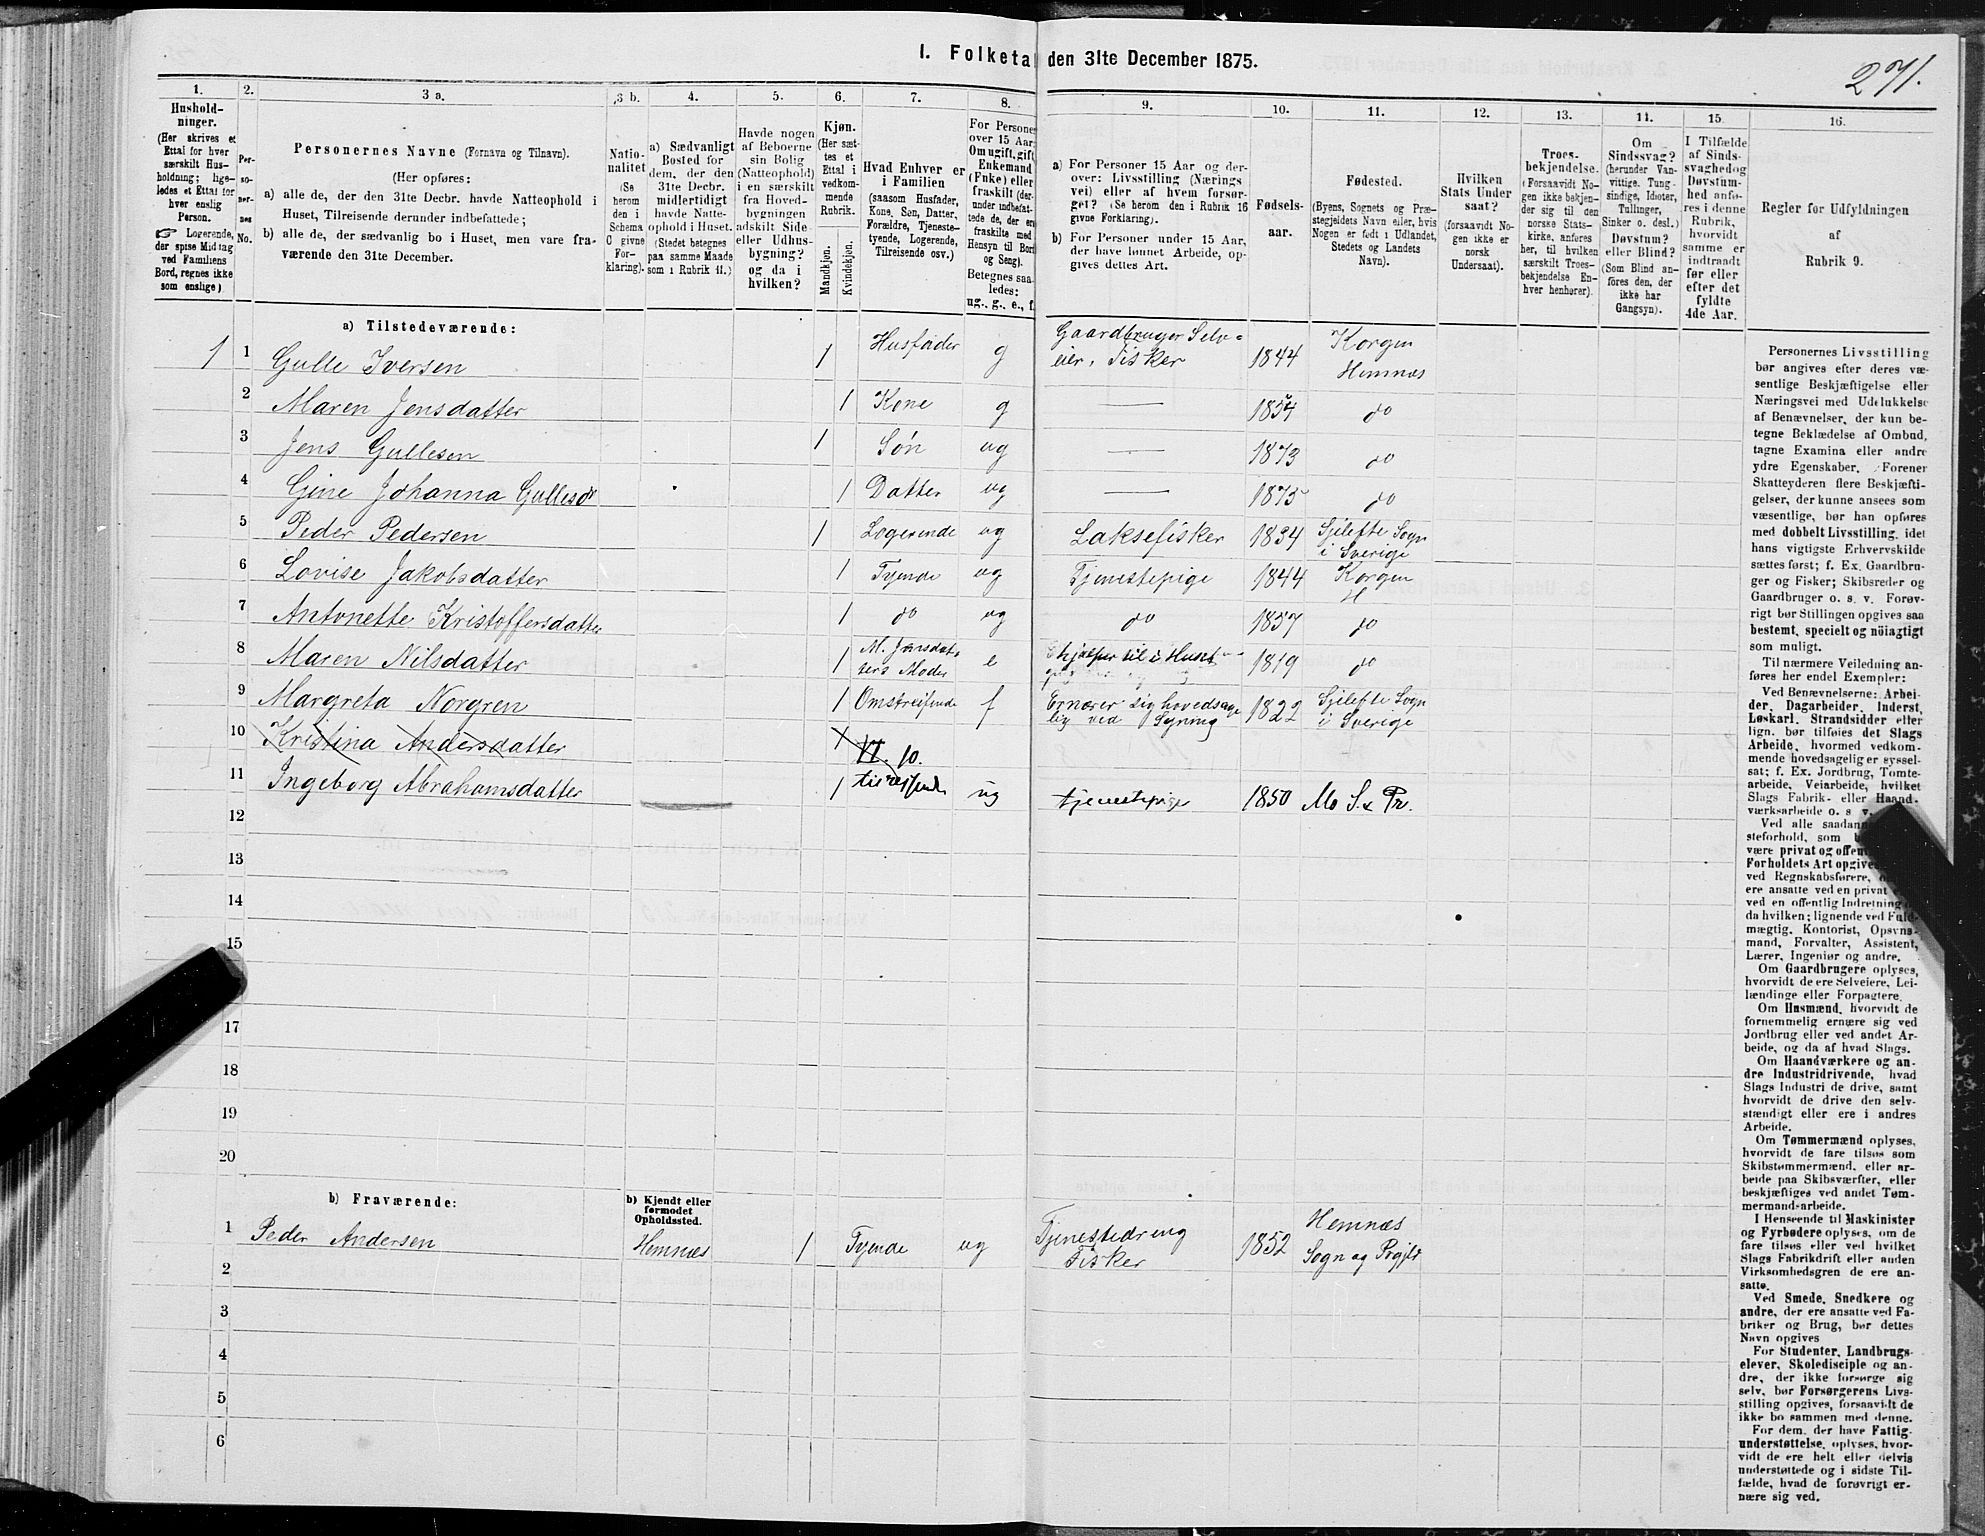 I. Folketal den 31te December 1875.
271.
1.
Hushold-
ninger.
(Her skrives et
Ettal for hver
særskilt Hus-
holdning; lige-
ledes et Ettal for
hver enslig
Person.
☞ Logerende,
der spise Middag
ved Familiens
Bord, regnes ikke
som enslige)
2.
Per-
so-
ner-
nes
No.
3 a.
Personernes Navne (Fornavn og Tilnavn).
(Her opføres:
a) alle de, der den 31te Decbr. havde Natteophold i
Huset, Tilreisende derunder indbefattede;
b) alle de, der sædvanlig bo i Huset, men vare fra-
værende den 31te December.
3 b.
Natio-
nalitet
(Se
herom
den i
Schema
C givne
For-
klaring).
4.
a) Sædvanligt
Bosted for
dem, der den
31te Decbr.
midlertidigt
havde Natte-
ophold i Huset.
(Stedet betegnes
paa samme Maade
som i Rubrik 11.)
5.
Havde nogen
af Beboerne
sin Bolig
(Natteophold)
i en særskilt
fra Hoved-
bygningen
adskilt Side-
eller Udhus-
bygning?
og da i
hvilken?
6.
Kjøn.
(Her sæt-
tes et
Ettal i
vedkom-
mende
Rubrik.
Mandkjøn.
Kvindekjøn.
7.
Hvad Enhver er
i Familien
(saasom Husfader,
Kone, Søn, Datter,
Forældre, Tjeneste-
tyende, Logerende,
Tilreisende osv.)
8.
For Personer
over 15 Aar:
Om ugift, gift,
Enkemand
(Enke) eller
fraskilt (der-
under indbefat-
tede de, der ere
fraskilte med
Hensyn til Bord
og Seng).
Betegnes saa-
ledes:
ug., g., e., f.
9.
a) For Personer 15 Aar og der-
over: Livsstilling (Nærings-
vei) eller af hvem forsør-
get? (Se herom den i Rubrik 16
givne Forklaring).
b) For Personer under 15 Aar,
der have lønnet Arbeide, op-
gives dettes Art.
10.
Fødsels-
aar.
11.
Fødested.
(Byens, Sognets og Præ-
stegjeldets Navn eller, hvis
Nogen er født i Udlandet,
Stedets og Landets
Navn).
12.
Hvilken
Stats Under-
saat?
(forsaavidt No-
gen ikke er
norsk
Undersaat).
13.
Troes-
bekjendelse.
(Forsaavidt No-
gen ikke bekjen-
der sig til den
norske Stats-
kirke, anføres
her, til hvilken
særskilt Troes-
bekjendelse En-
hver henhører).
14.
Om
Sindssvag?
(herunder Van-
vittige, Tung-
sindige, Idioter,
Tullinger,
Sinker o. desl.)
Døvstum?
eller Blind?
(Som Blind an-
føres den, der
ikke har
Gangsyn).
15.
I Tilfælde
af Sinds-
svaghed og
Døvstum-
hed anfø-
res i denne
Rubrik,
hvorvidt
samme er
indtraadt
før eller
efter det
fyldte
4de Aar.
16.
Regler for Udfyldningen
af
Rubrik 9.
a) Tilstedeværende:
1 1 Gulle Iversen 1 Husfader g Gaardbruger Selv-
eier, Fisker 1844 Korgen
Hemnæs
2 Maren Jensdatter 1 Kone g — 1854 do
3 Jens Gullesen 1 Søn ug — 1873 do
4 Gine Johanna Gullesdr 1 Datter ug — 1875 do
5 Peder Pedersen 1 Logerende ug Laksefisker 1834 Sjilefte Sogn
i Sverige
6 Lovise Jakobsdatter 1 Tyende ug Tjenestepige 1844 Korgen
H
7 Antonette Kristoffersdatter 1 do ug do 1857 do
8 Maren Nilsdatter 1 M. Jensdat-
ters Moder e hjælper til i Huset 1819 do
9 Margreta Norgren 1 Omstreifende f Ernærer sig hovedsage
lig ved Syning 1822 Sjilefte Sogn
i Sverige
10 Kristina Andersdatter 1
10.
11 Ingeborg Abrahamsdatter 1 tilreisende ug tjenestepige 1850 Mo S. & Pr.
12
13
14
15
17
18
19
20
b) Fraværende:
b) Kjendt eller
formodet
Opholdssted.
1 Peder Andersen Hemnæs 1 Tyende ug Tjenestedreng
Fisker 1852 Hemnæs
Sogn og Prgjld
2
3
4
5
6
Personernes Livsstilling
bør angives efter deres væ-
sentlige Beskjæftigelse eller
Næringsvei med Udelukkelse
af Benævnelser, der kun be-
tegne Beklædelse af Ombud,
tagne Examina eller andre
ydre Egenskaber. Forener
Skatteyderen flere Beskjæfti-
gelser, der kunne ansees som
væsentlige, bør han opføres
med dobbelt Livsstilling, idet
hans vigtigste Erhvervskilde
sættes først; f. Ex. Gaardbru-
ger og Fisker; Skibsreder og
Gaardbruger o. s. v. Forøv-
rigt bør Stillingen opgives saa
bestemt, specielt og nöiagtigt
som muligt.
Til nærmere Veiledning an-
føres her endel Exempler:
Ved Benævnelserne: Arbei-
der, Dagarbeider, Inderst,
Løskarl, Strandsidder eller
lign. bør tilføies det Slags
Arbeide, hvormed vedkom-
mende hovedsagelig er syssel-
sat; f. Ex. Jordbrug, Tomte-
arbeide, Veiarbeide, hvilket
Slags Fabrik- eller Haand-
værksarbeide o. s. v.
Ved alle saadanne
steforhold, som
være privat og offen
Forholdets Art opgives
ved Regnskabsførere,
ere ansatte ved en privat
ved en offentlig Indretning
da hvilken; lignende ved Fuld-
mægtig, Kontorist, Opsyns-
mand, Forvalter, Assistent,
Lærer, Ingeniør og andre.
Om Gaardbrugere oplyses,
hvorvidt de ere Selveiere, Lei-
lændinge eller Forpagtere.
Om Husmænd, hvorvidt de
fornemmelig ernære sig ved
Jordbrug eller ved andet Ar-
beide, og da af hvad Slags.
Om Haandværkere og an-
dre Industridrivende, hvad
Slags Industri de drive, samt
hvorvidt de drive den selv-
stændigt eller ere i andres
Arbeide.
Om Tømmermænd oplyses,
hvorvidt de fare tilsøs som
Skibstømmermænd, eller ar-
beide paa Skibsværfter, eller
beskjæftiges ved andet Tøm-
mermand-arbeide.
I Henseende til Maskinister
og Fyrbødere oplyses, om de
fare tilsøs eller ved hvilket
Slags Fabrikdrift eller anden
Virksomhedsgren de ere an-
satte.
Ved Smede, Snedkere og
andre, der ere ansatte ved Fa-
briker og Brug, bør dettes
Navn opgives
For Studenter, Landbrugs-
elever, Skoledisciple og an-
dre, der ikke forsørge sig
selv, bør Forsørgerens Livs-
stilling opgives, forsaavidt de
ikke bo sammen med denne.
For dem, der have Fattig-
understøttelse, oplyses, hvor-
vidt de ere helt eller delvis
understøttede og i sidste Til-
fælde, hvad de forøvrigt er-
nære sig ved.